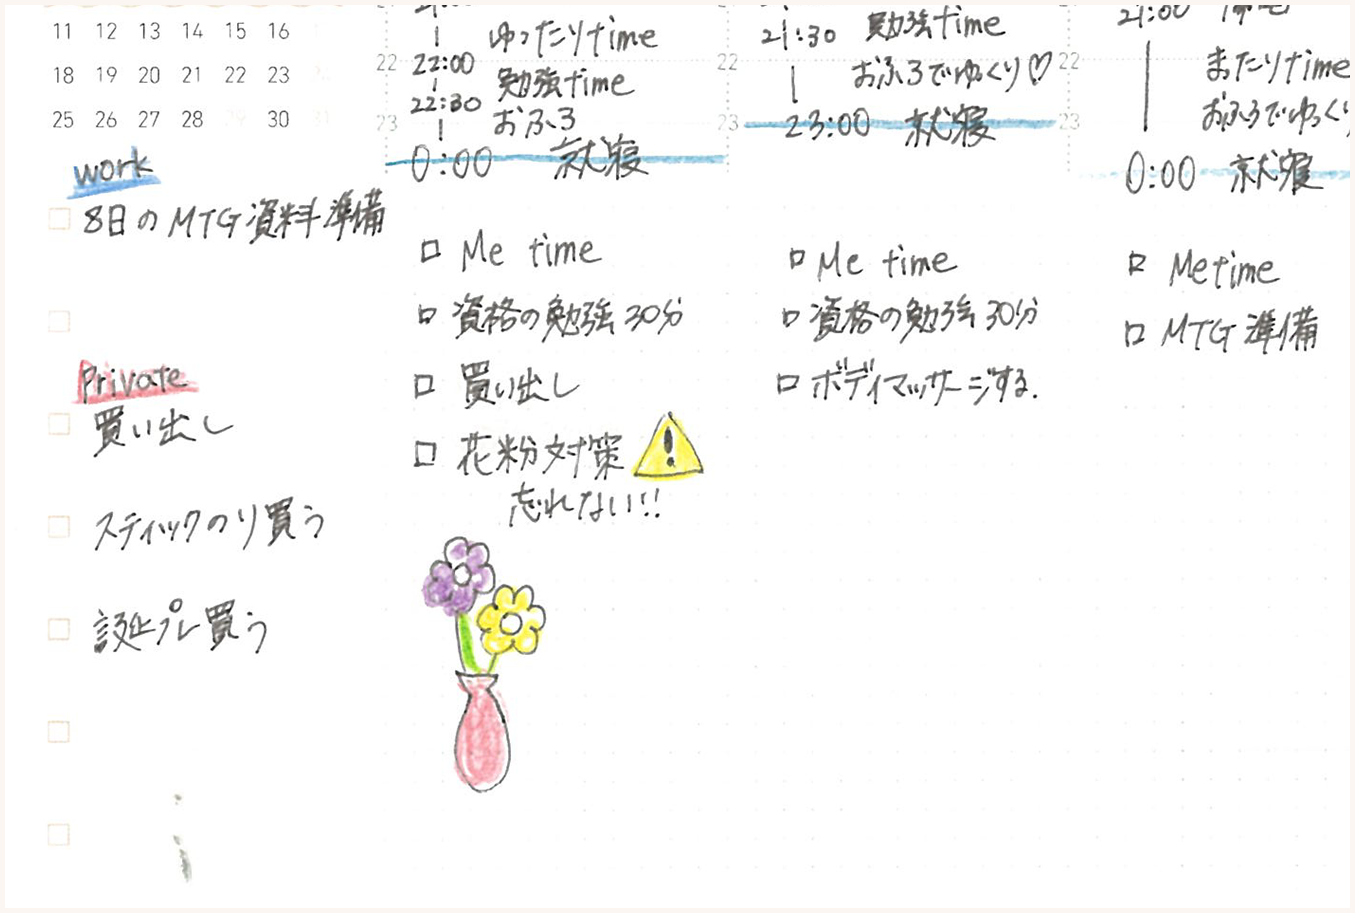 11 12 13 14 15 16
18 19 20 21 22 23
25 26 27 28 29 30 31
work
8日のMTG資料準備
Private
買い出し
スティックのり買う
誕プレ買う
ゆったりtime
22
22:00
勉強time
22:30
おふろ
23
0:00 就寝
Me time
資格の勉強30分
買い出し
花粉対策
!
忘れない!!
21:30 勉強time
22
おふろでゆっくり♡
23
23:00 就寝
Me time
資格の勉強30分
ボディマッサージする.
21:00
22
またりtime
おふろでゆっくり
23
0:00 就寝
Me time
MTG準備